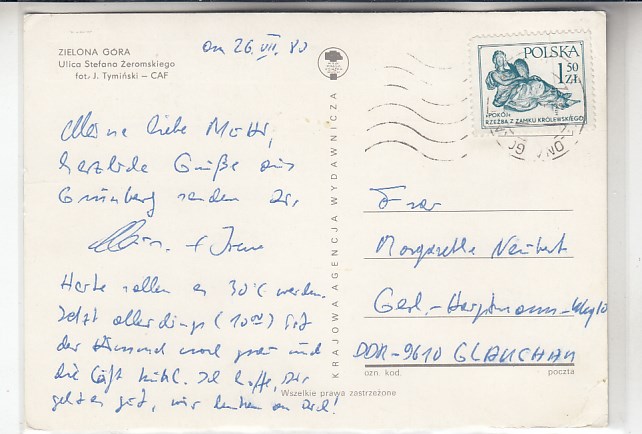 ZIELONA GÓRA
Ulica Stefana Żeromskiego
fot. J. Tymiński — CAF
am 26. VII. 80
Meine liebe Mutti,
herzliche Grüße aus
Grünberg senden Dir,
+ Irene
Heute sollen es 30°C werden.
Jetzt allerdings (10⁰⁰) ist
der Himmel noch grau und
die Luft kühl. Ich hoffe, Dir
geht es gut, wir denken an Dich!
KRAJOWA AGENCJA WYDAWNICZA
POLSKA
1 50 ZŁ
«POKÓJ»
RZEŹBA Z ZAMKU KRÓLEWSKIEGO
Frau
Margarethe Neubert
Gerh.-Hauptmann-Weg 10
DDR-9610 GLAUCHAU
ozn. kod. poczta
Wszelkie prawa zastrzeżone